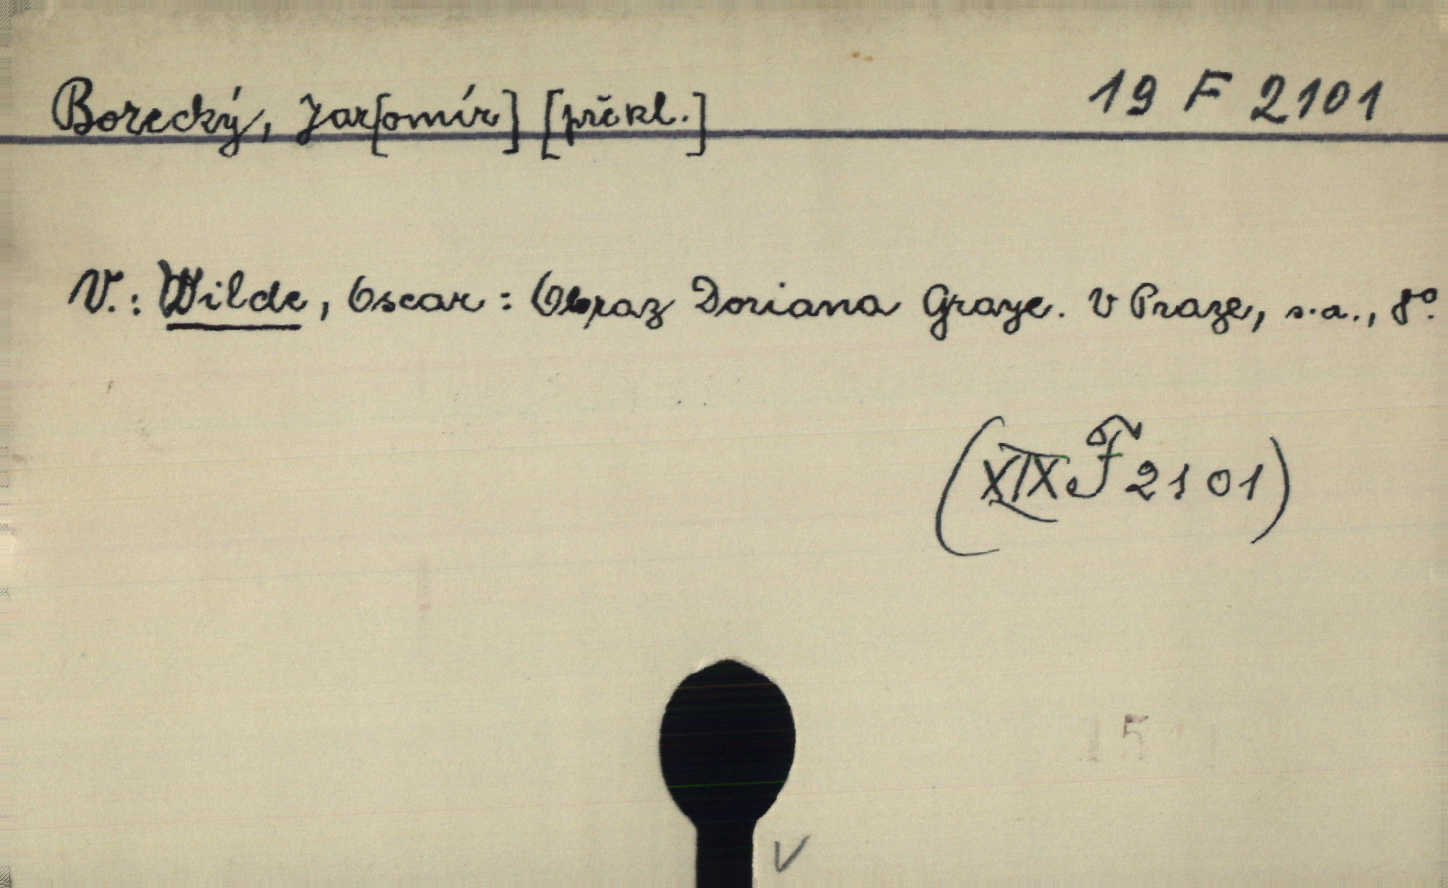 Borecký, Jar[omír] [překl.] 19 F 2101
V.: Wilde, Oscar: Obraz Doriana Graye. V Praze, s.a., 8°.
(XIX F 2101)
5
v